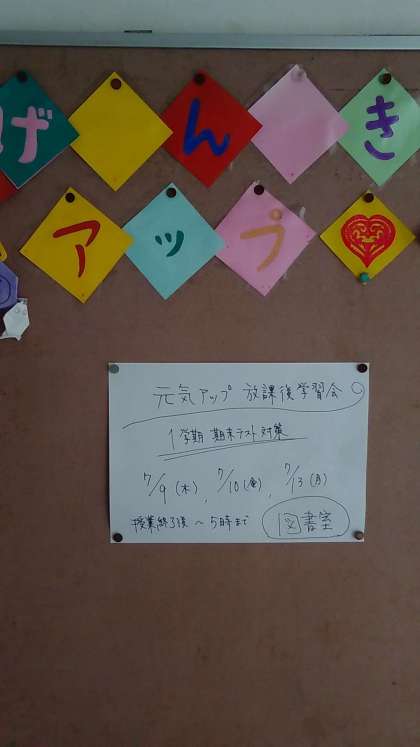 げんき
アップ
元気アップ 放課後学習会
1学期 期末テスト対策
7/9(木)、7/10(金)、7/13(月)
授業終了後 ~ 5時まで 図書室